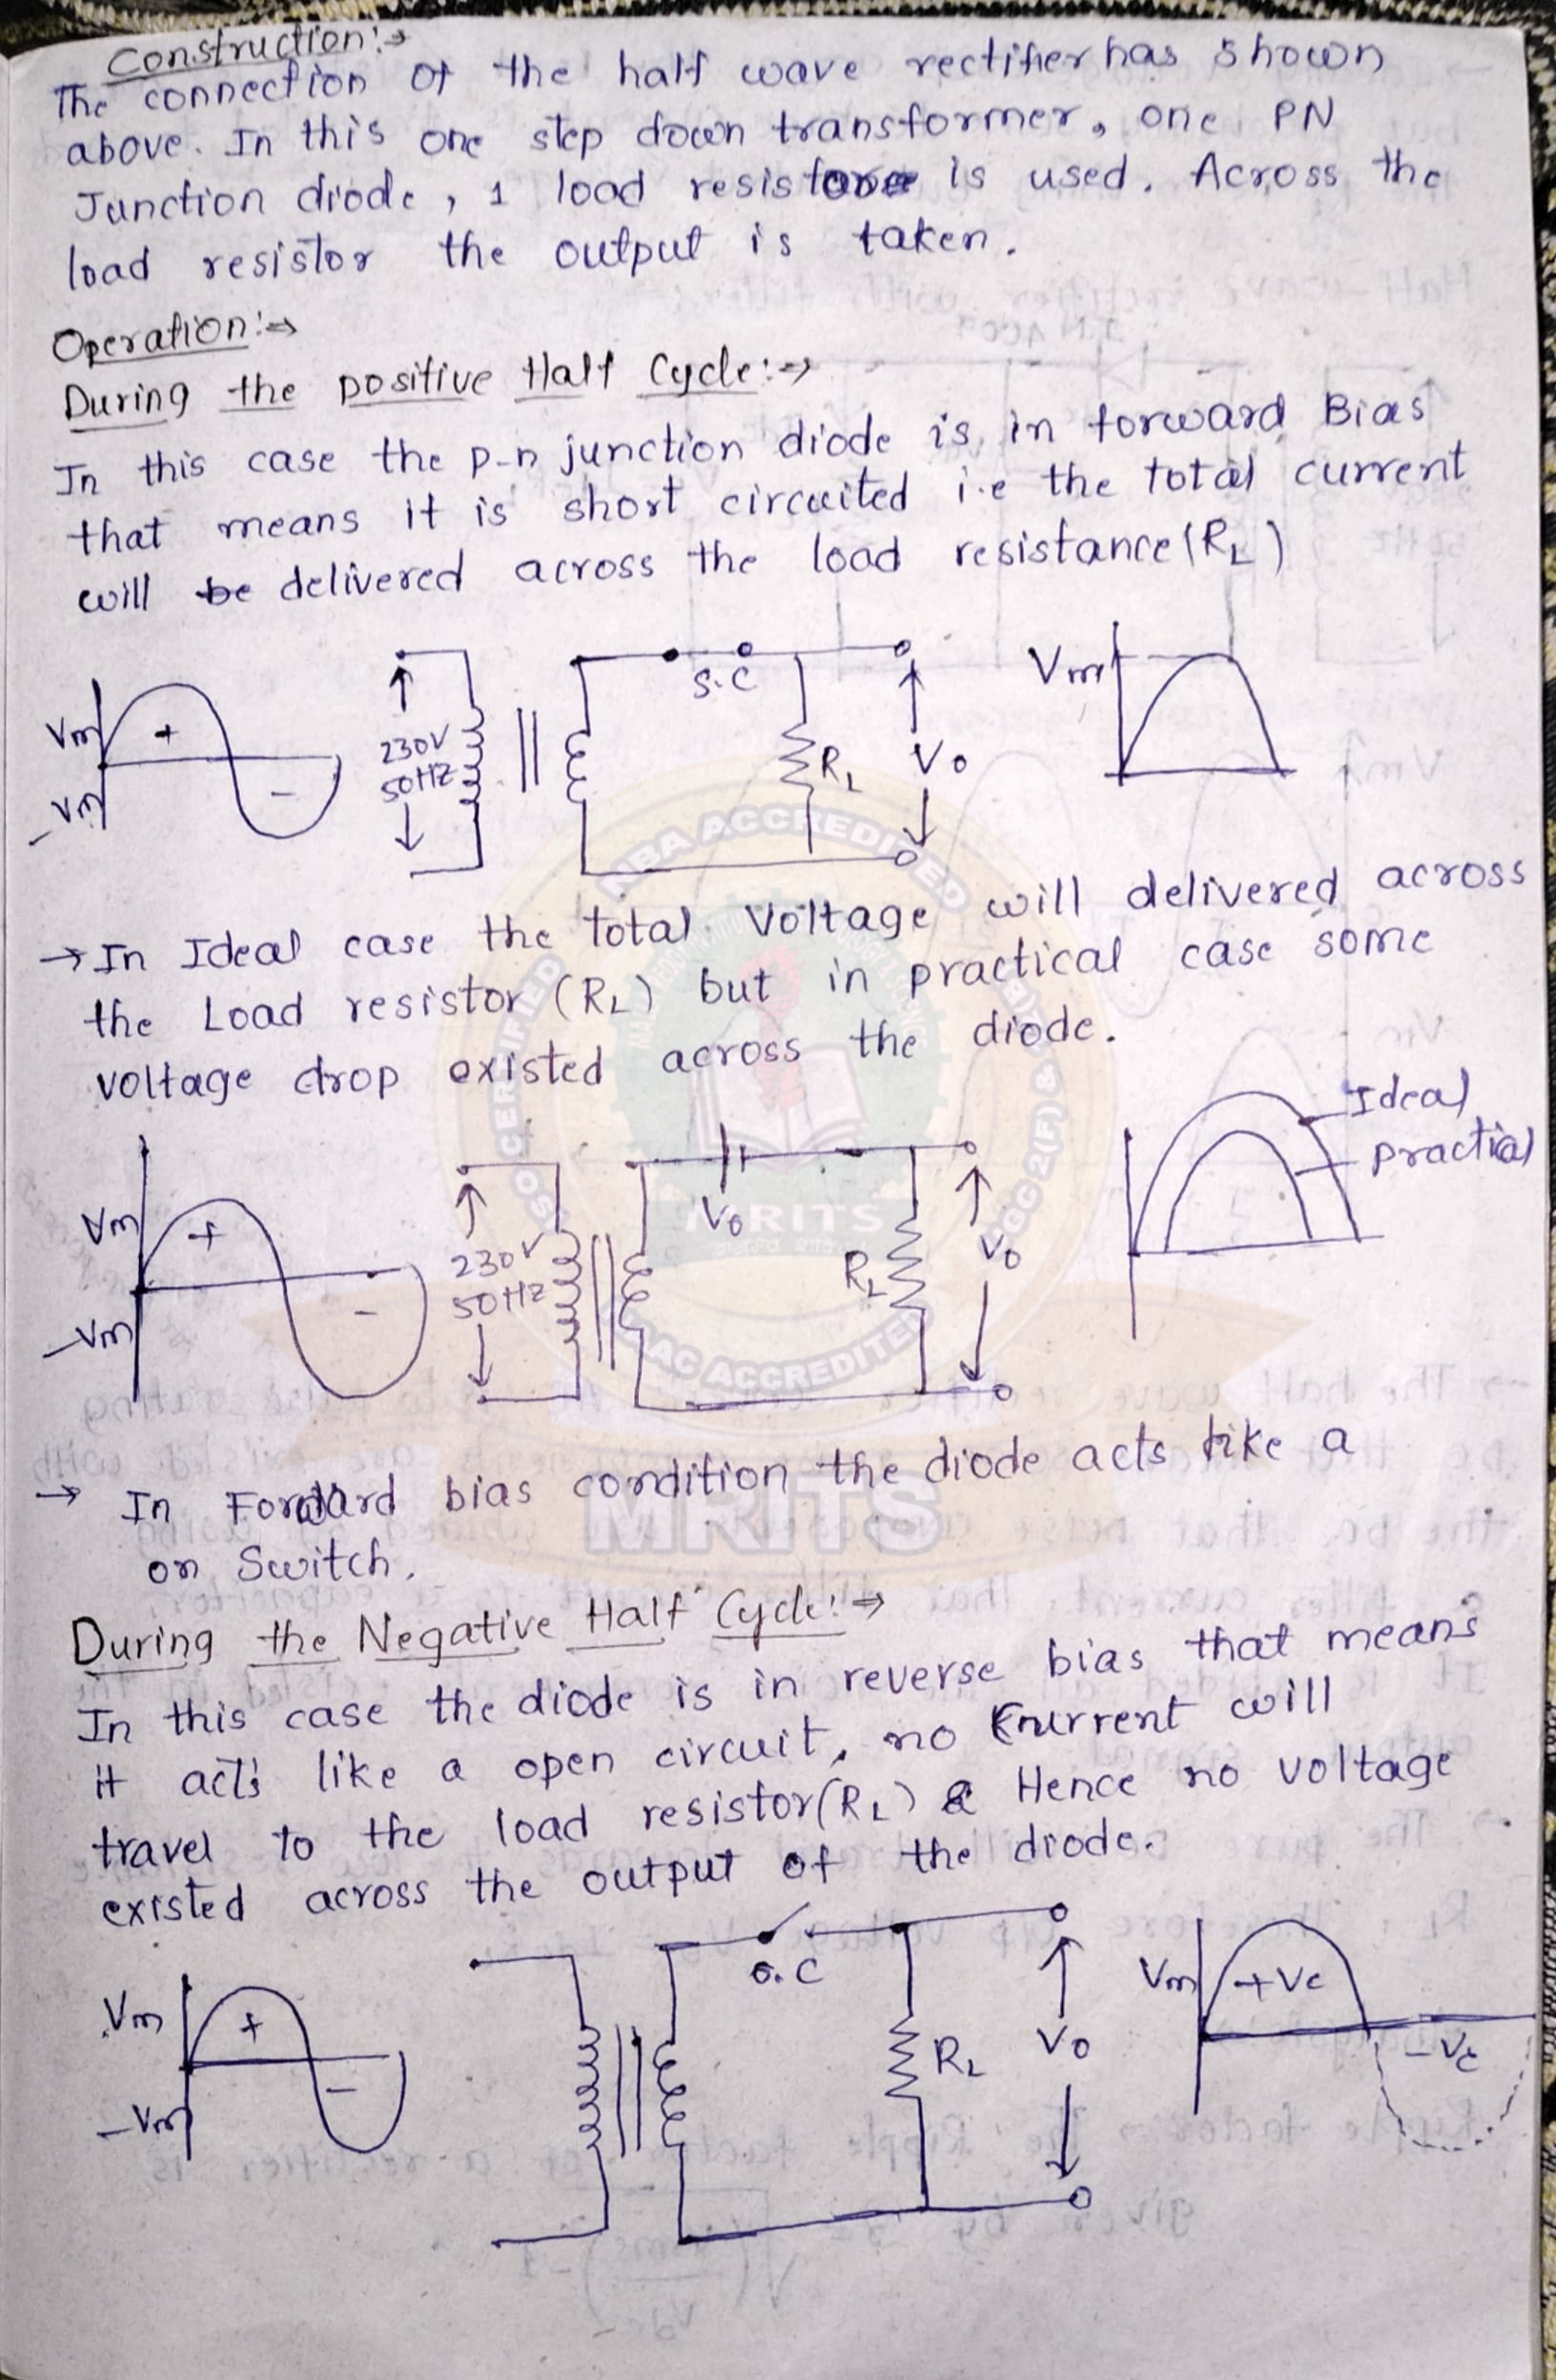 Construction:→
The connection of the half wave rectifier has shown
above. In this one step down transformer, one PN
Junction diode, 1 load resistore is used. Across the
load resistor the output is taken.
Operation:⇒
During the positive Half Cycle:→
In this case the p-n junction diode is in forward Bias
that means it is short circuited i.e the total current
will be delivered across the load resistance (RL)
Vm
+
-
-Vm
230V
50HZ
S.C
RL
Vo
Vm
→ In Ideal case the total Voltage will delivered across
the Load resistor (RL) but in practical case some
voltage drop existed across the diode.
Vm
+
-
-Vm
230V
50HZ
Vo
RL
Vo
Ideal
practial
→ In Forward bias condition the diode acts like a
on Switch.
During the Negative Half Cycle:→
In this case the diode is in reverse bias that means
it acts like a open circuit, no current will
travel to the load resistor (RL) & Hence no voltage
existed across the output of the diode.
Vm
+
-
-Vm
O.C
RL
Vo
Vm
+Ve
-Ve
NBA ACCREDITED
CERTIFIED
UGC 2(F) &
NAAC ACCREDITED
MRITS
MRITS